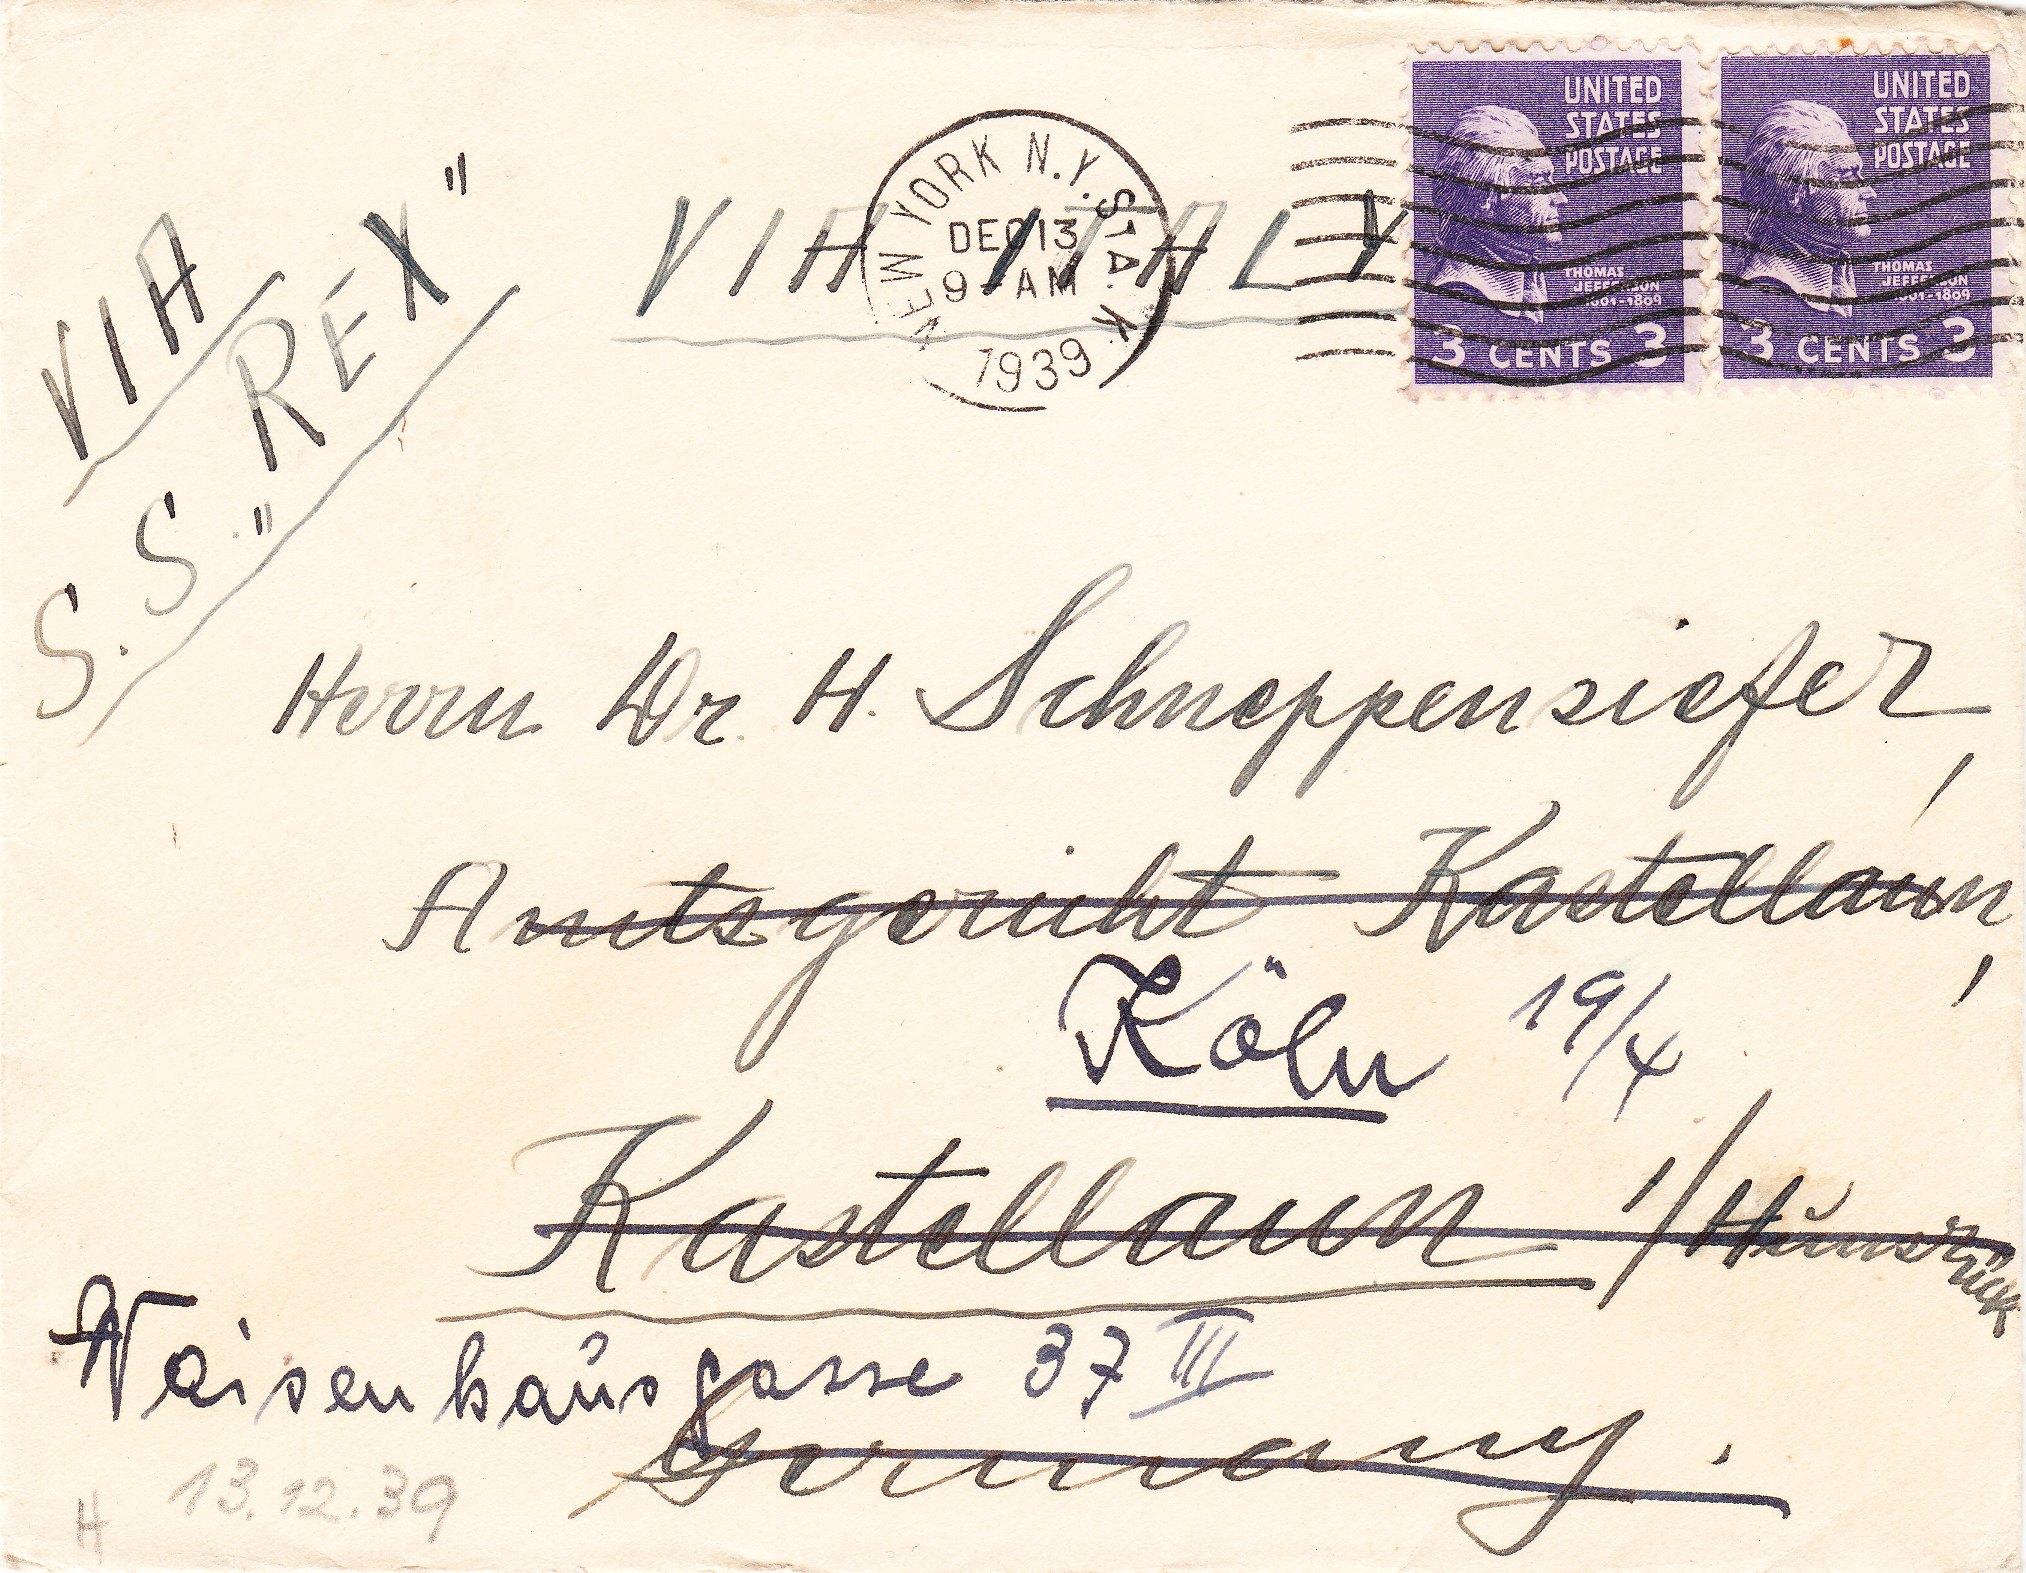 VIA
S.S. "REX"
VIA ITALY
NEW YORK N.Y. STA. K
DEC 13
9 - AM
1939
UNITED
STATES
POSTAGE
THOMAS
JEFFERSON
1801-1809
3 CENTS 3
UNITED
STATES
POSTAGE
THOMAS
JEFFERSON
1801-1809
3 CENTS 3
Herrn Dr. H. Schneppensiefer,
Amtsgericht Kastellaun,
Köln 19/4
Kastellaun i/Hunsrück
Waisenhausgasse 37 III
Germany.
H 13.12.39